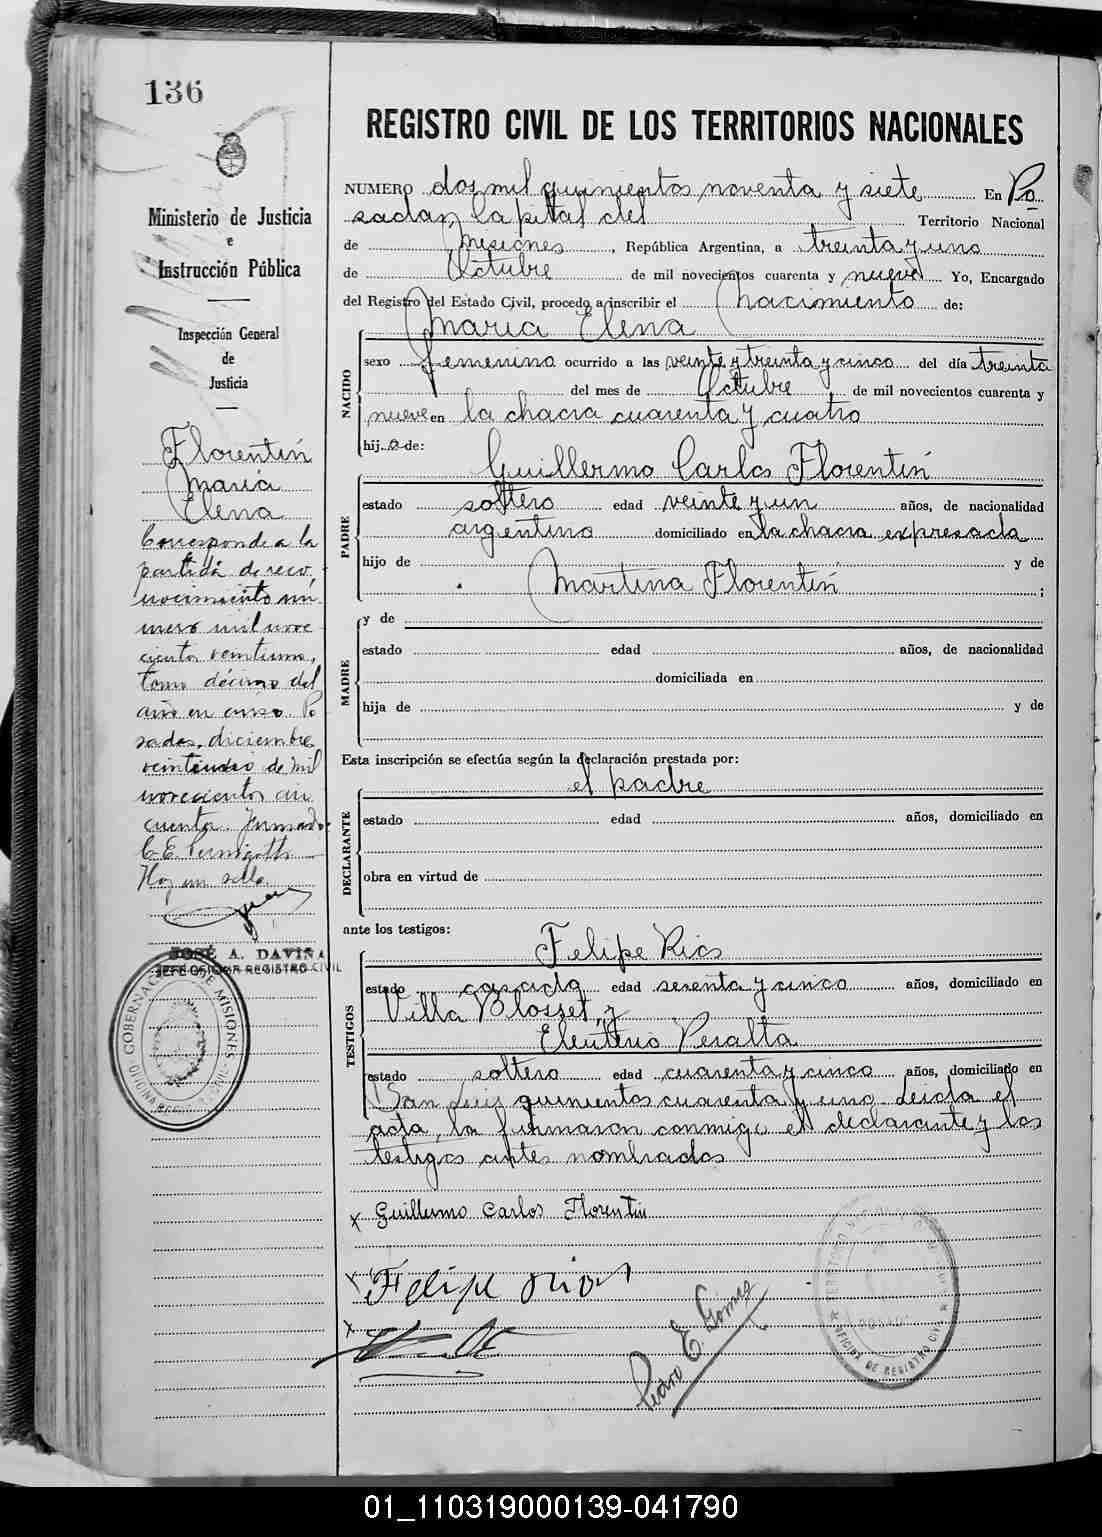 136
Ministerio de Justicia
e
Instrucción Pública
Inspección General
de
Justicia
Florentín
María
Elena
Corresponde a la
partida de reco-
nocimiento nú-
mero mil nove-
cientos veintiuno,
tomo décimo del
año en curso. Po
sadas, diciembre
de mil
novecientos cin
cuenta. firmado:
C. E.
Hay un sello.
JOSÉ A. DAVIÑA
JEFE OFICINA REGISTRO CIVIL
REGISTRO CIVIL DE LOS TERRITORIOS NACIONALES
NUMERO dos mil quinientos noventa y siete En Po
sadas, Capital del Territorio Nacional
de Misiones, República Argentina, a treinta y uno
de Octubre de mil novecientos cuarenta y nueve Yo, Encargado
del Registro del Estado Civil, procedo a inscribir el Nacimiento de:
María Elena
NACIDO
sexo femenino ocurrido a las veinte y treinta y cinco del día treinta
del mes de Octubre de mil novecientos cuarenta y
nueve en la chacra cuarenta y cuatro
hij a de:
Guillermo Carlos Florentín
PADRE
estado soltero edad veinte y un años, de nacionalidad
argentino domiciliado en la chacra expresada
hijo de y de
Martina Florentín ;
MADRE
y de
estado edad años, de nacionalidad
domiciliada en
hija de y de
Esta inscripción se efectúa según la declaración prestada por:
el padre
DECLARANTE
estado edad años, domiciliado en
obra en virtud de
ante los testigos:
Felipe Rios
TESTIGOS
estado casado edad sesenta y cinco años, domiciliado en
Villa Blosset, y
Eleuterio Peralta
estado soltero edad cuarenta y cinco años, domiciliado en
San Luis quinientos cuarenta y uno. Leida el
acta, la firmaron conmigo el declarante y los
testigos antes nombrados
x Guillermo Carlos Florentin
x Felipe Rios
x
Pedro E. Gómez
01_110319000139-041790